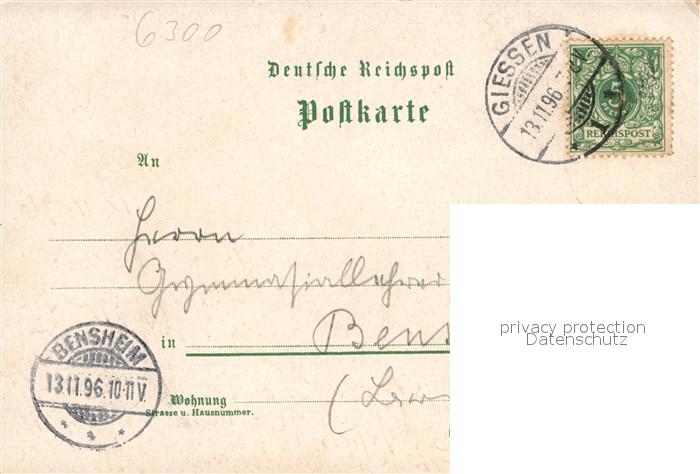 6300
Deutsche Reichspost
Postkarte
GIESSEN
13.11.96
5
REICHSPOST
An
Herrn
Gymnasiallehrer
in Bens
BENSHEIM
13.11.96.10-11V.
Wohnung
Strasse u. Hausnummer.
privacy protection
Datenschutz